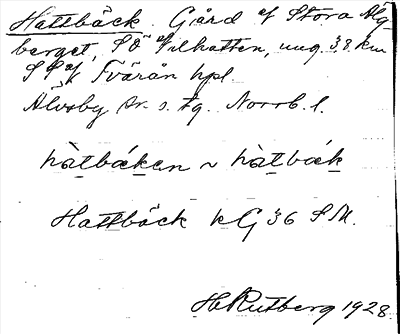 Hattbäck. Gård af Stora Älg-
berget, SÖ Vilhatten, ung. 3.8 km
S Tvärån hpl.
Älvsby sn. o. tg. Norrb. l.
hàtbäkan ~ hàtbäk
Hattbäck kG 36 S.M.
H Rutberg 1928.